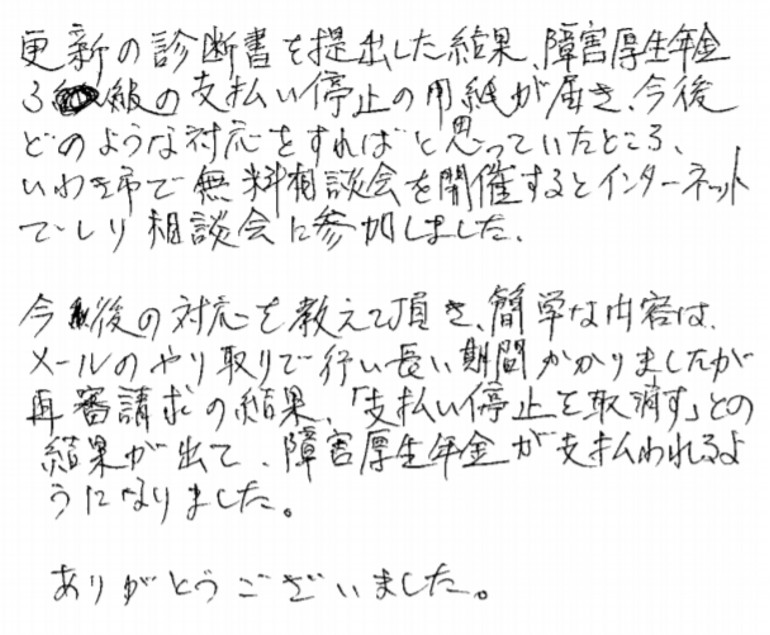 更新の診断書を提出した結果、障害厚生年金
3級の支払い停止の用紙が届き、今後
どのような対応をすればと思っていたところ、
いわき市で無料相談会を開催するとインターネット
でしり相談会に参加しました、
今後の対応を教えて頂き、簡単な内容は、
メールのやり取りで行い長い期間かかりましたが
再審請求の結果、「支払い停止を取消す」との
結果が出て、障害厚生年金が支払われるよ
うになりました。
ありがとうございました。